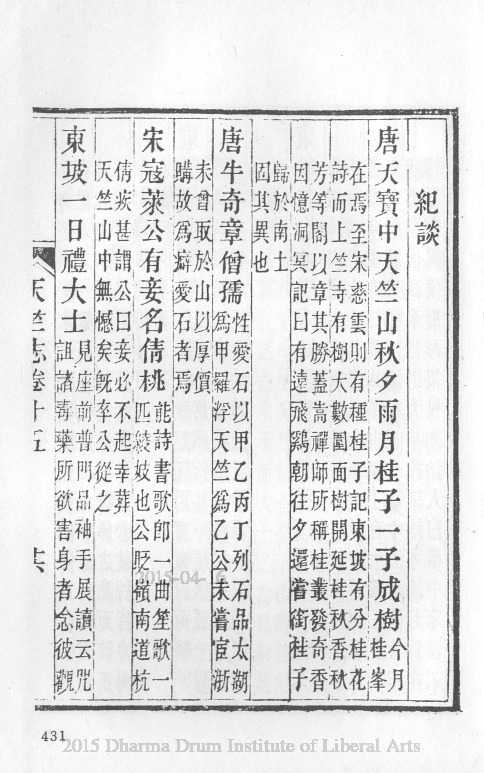 紀談
唐天寶中天竺山秋夕雨月桂子一子成樹今月桂峯
在焉至宋慈雲則有種桂子記東坡有分桂花
詩而上竺寺有樹大數圍面樹開延桂秋香秋
芳等閣以章其勝蓋嵩禪師所稱桂叢發奇香
因憶洞冥記曰有遠飛鷄朝往夕還當銜桂子
歸於南土
固其異也
唐牛奇章僧孺性愛石以甲乙丙丁列石品太湖
爲甲羅浮天竺爲乙公未嘗宦浙
未曾取於山以厚價
購故爲癖愛石者焉
宋寇萊公有妾名倩桃能詩書歌郎一曲笙歌一
匹綾妓也公貶嶺南道杭
倩疾甚謂公曰妾必不起幸葬
天竺山中無憾矣旣卒公從之
東坡一日禮大士見座前普門品袖手展讀云咒
詛諸毒藥所欲害身者念彼觀
天竺志卷十五
六
431
2015-04-
2015 Dharma Drum Institute of Liberal Arts